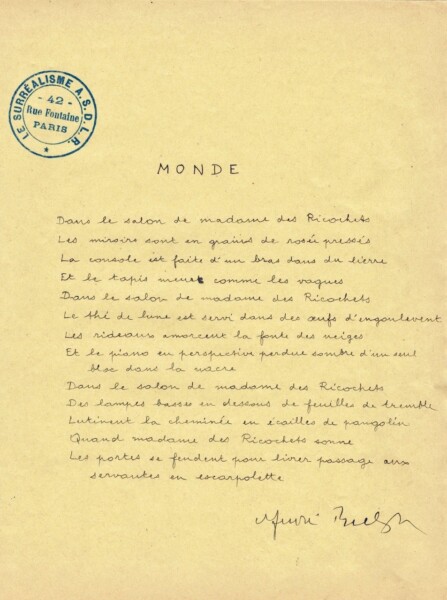 LE SURRÉALISME A. S. D. L. R.
- 42 -
Rue Fontaine
PARIS
MONDE
Dans le salon de madame des Ricochets
Les miroirs sont en grains de rosée pressés
La console est faite d'un bras dans du lierre
Et le tapis meurt comme les vagues
Dans le salon de madame des Ricochets
Le thé de lune est servi dans des œufs d'engoulevent
Les rideaux amorcent la fonte des neiges
Et le piano en perspective perdue sombre d'un seul
bloc dans la nacre
Dans le salon de madame des Ricochets
Des lampes basses en dessous de feuilles de tremble
Lutinent la cheminée en écailles de pangolin
Quand madame des Ricochets sonne
Les portes se fendent pour livrer passage aux
servantes en escarpolette